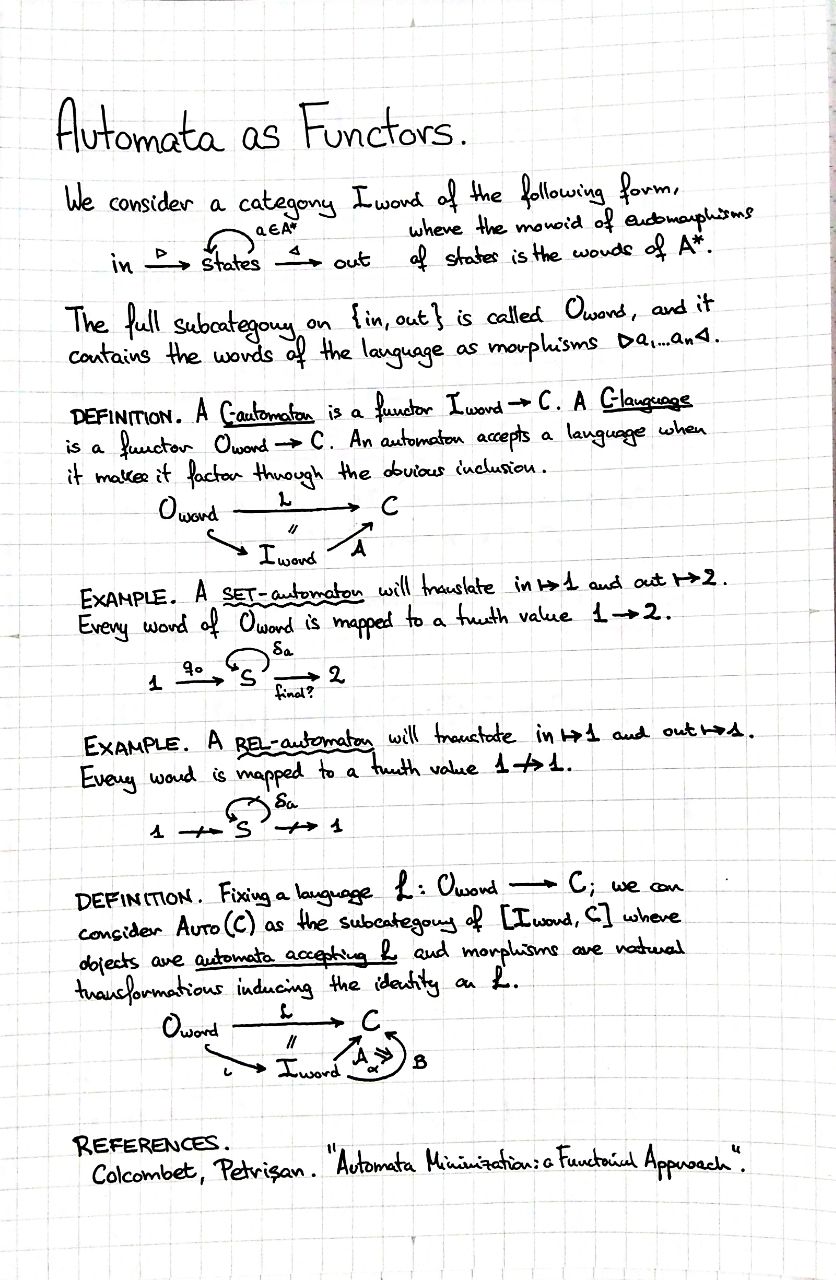 Automata as Functors.
We consider a category Iword of the following form,
where the monoid of endomorphisms
of states is the words of A*.
in —▷→ states —◁→ out
a∈A*
The full subcategory on {in, out} is called Oword, and it
contains the words of the language as morphisms ▷a₁...aₙ◁.
DEFINITION. A C-automaton is a functor Iword → C. A C-language
is a functor Oword → C. An automaton accepts a language when
it makes it factor through the obvious inclusion.
Oword —L→ C
=
Iword A
EXAMPLE. A SET-automaton will translate in ↦ 1 and out ↦ 2.
Every word of Oword is mapped to a truth value 1 → 2.
δa
1 —q₀→ S → 2
final?
EXAMPLE. A REL-automaton will translate in ↦ 1 and out ↦ 1.
Every word is mapped to a truth value 1 ↛ 1.
δa
1 ↛ S ↛ 1
DEFINITION. Fixing a language L: Oword → C; we can
consider AUTO(C) as the subcategory of [Iword, C] where
objects are automata accepting L and morphisms are natural
transformations inducing the identity on L.
Oword —L→ C
=
ι Iword A ⇒ B
α
REFERENCES.
Colcombet, Petrişan. "Automata Minimization: a Functorial Approach".